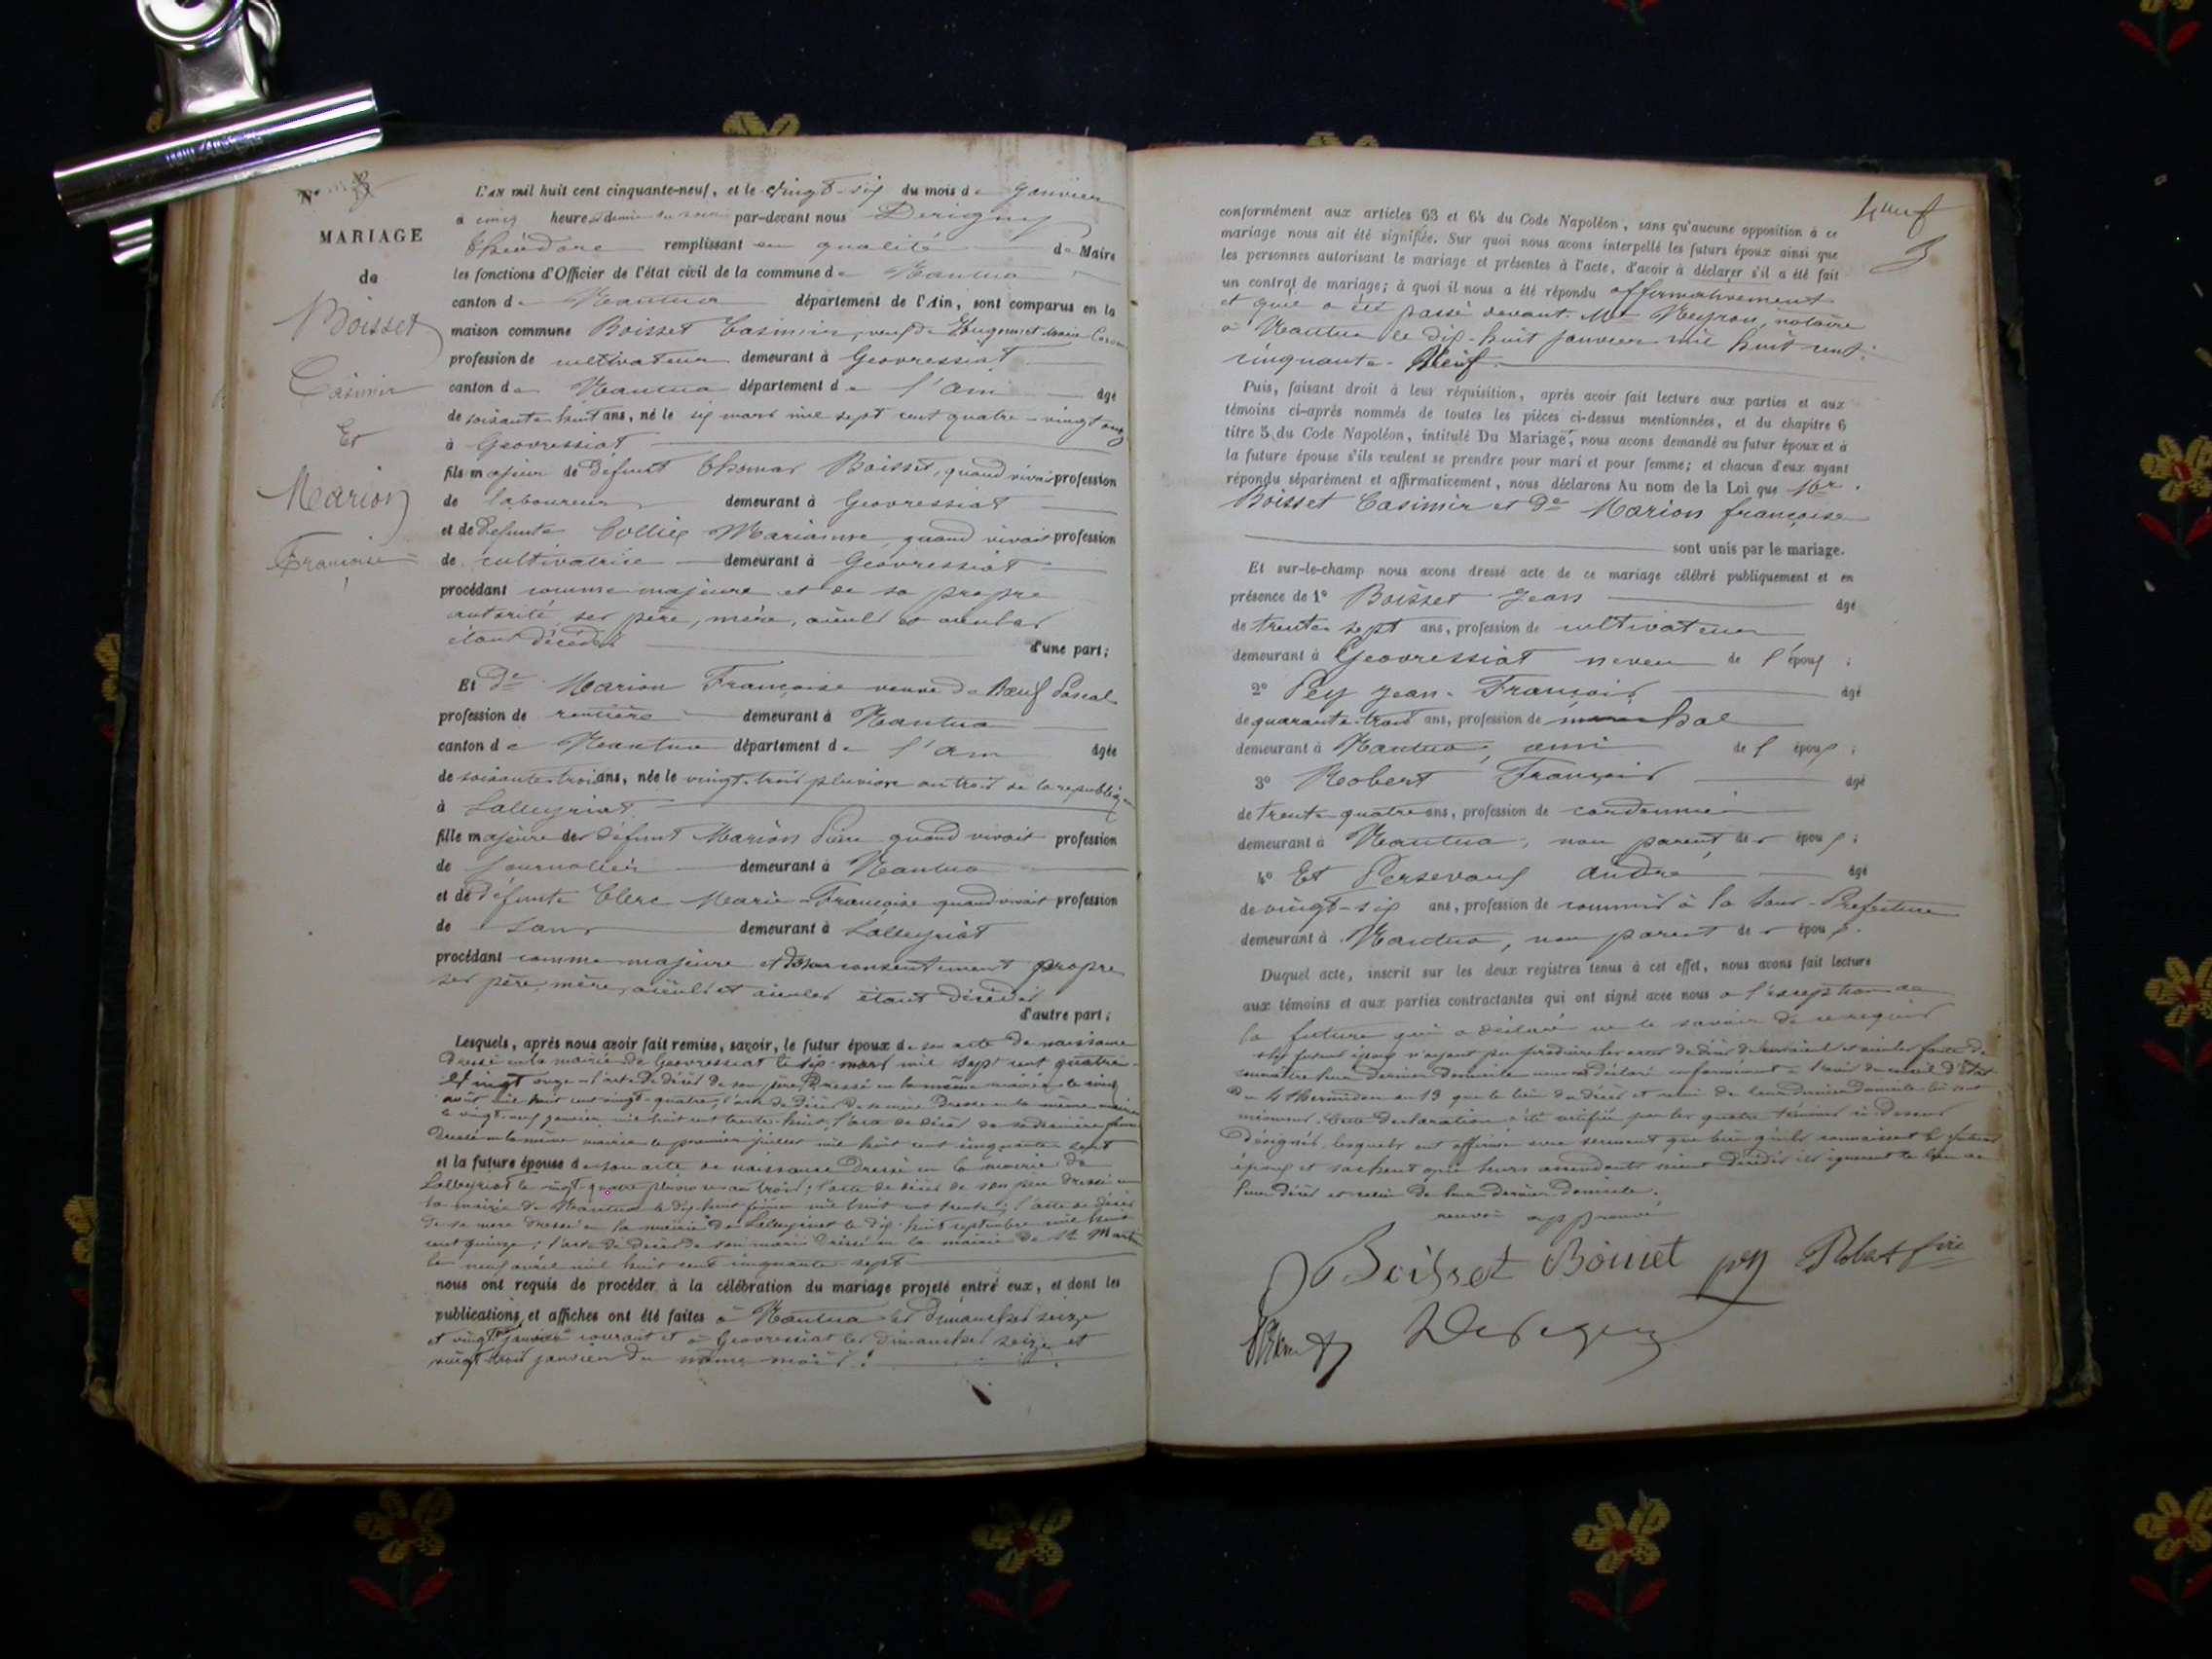 N°
MARIAGE
de
Boisset
Casimir
Et
Marion
Françoise
L'AN mil huit cent cinquante-neuf, et le vingt-six du mois de Janvier
à cinq heures et demie du soir par-devant nous Derigny
Théodore remplissant en qualité de Maire
les fonctions d'Officier de l'état civil de la commune de Nantua
canton de Nantua département de l'Ain, sont comparus en la
maison commune Boisset Casimir, veuf de Hugonnet Marie
profession de cultivateur demeurant à Geovressiat
canton de Nantua département de l'ain âgé
de soixante-huit ans, né le six mars mil sept cent quatre-vingt onze
à Geovressiat
fils majeur de défunt Thomas Boisset, quand vivait profession
de laboureur demeurant à Geovressiat
et de défunte Collix Marianne, quand vivait profession
de cultivatrice demeurant à Geovressiat
procédant comme majeure et de sa propre
autorité, ses père, mère, aïeuls et aïeules
étant décédés d'une part;
Et De Marion Françoise veuve de Bœuf Pascal
profession de rentière demeurant à Nantua
canton de Nantua département de l'ain âgée
de soixante-trois ans, née le vingt-trois pluviose an trois de la république
à Lalleyriat
fille majeure de défunt Marion Pierre quand vivait profession
de journalier demeurant à Nantua
et de défunte Clerc Marie-Françoise quand vivait profession
de Sans demeurant à Lalleyriat
procédant comme majeure et de son consentement propre
ses père, mère, aïeuls et aïeules étant décédés
d'autre part;
Lesquels, après nous avoir fait remise, savoir, le futur époux de son acte de naissance
dressé en la mairie de Geovressiat le six mars mil sept cent quatre-
vingt onze, l'acte de décès de son père, dressé en la même mairie le
août mil huit cent vingt-quatre, l'acte de décès de sa mère dressé en la même mairie
le vingt-neuf janvier mil huit cent trente-huit, l'acte de décès de sa dernière femme
dressé en la même mairie le premier juillet mil huit cent cinquante-sept
et la future épouse de son acte de naissance dressé en la mairie de
Lalleyriat le vingt-quatre pluviose an trois; l'acte de décès de son père dressé en
la mairie de Nantua le dix-huit février mil huit cent trente; l'acte de décès
de sa mère dressé en la mairie de Lalleyriat le dix-huit septembre mil huit
cent quinze; l'acte de décès de son mari dressé en la mairie de St Martin
le neuf avril mil huit cent cinquante sept
nous ont requis de procéder à la célébration du mariage projeté entre eux, et dont les
publications et affiches ont été faites à Nantua les dimanches seize
et vingt trois janvier courant et à Geovressiat les dimanches seize et
vingt trois janvier du même mois.
neuf
conformément aux articles 63 et 64 du Code Napoléon, sans qu'aucune opposition à ce
mariage nous ait été signifiée. Sur quoi nous avons interpellé les futurs époux ainsi que
les personnes autorisant le mariage et présentes à l'acte, d'avoir à déclarer s'il a été fait
un contrat de mariage; à quoi il nous a été répondu affirmativement
et qu'il a été passé devant Me Neyron, notaire
à Nantua le dix-huit janvier mil huit cent
cinquante-Neuf.
Puis, faisant droit à leur réquisition, après avoir fait lecture aux parties et aux
témoins ci-après nommés de toutes les pièces ci-dessus mentionnées, et du chapitre 6
titre 5 du Code Napoléon, intitulé Du Mariage, nous avons demandé au futur époux et à
la future épouse s'ils veulent se prendre pour mari et pour femme; et chacun d'eux ayant
répondu séparément et affirmativement, nous déclarons Au nom de la Loi que Mr
Boisset Casimir et De Marion françoise
sont unis par le mariage.
Et sur-le-champ nous avons dressé acte de ce mariage célébré publiquement et en
présence de 1° Boisset Jean âgé
de trente-sept ans, profession de cultivateur
demeurant à Geovressiat neveu de l'époux;
2° Pey Jean-François âgé
de quarante-trois ans, profession de maréchal
demeurant à Nantua, ami de l'époux;
3° Robert François âgé
de trente-quatre ans, profession de cordonnier
demeurant à Nantua, non parent des époux;
4° Et Persevaux André âgé
de vingt-six ans, profession de commis à la Sous-Préfecture
demeurant à Nantua, non parent des époux.
Duquel acte, inscrit sur les deux registres tenus à cet effet, nous avons fait lecture
aux témoins et aux parties contractantes qui ont signé avec nous à l'exception de
la future qui a déclaré ne le savoir de ce requis
les futurs époux n'ayant pu produire les actes de décès de leurs aïeuls et aïeules faute de
connaître leur dernier domicile nous ont déclaré conformément à l'avis du conseil d'Etat
du 4 thermidor an 13 que le lieu du décès et celui de leur dernier domicile leur sont
inconnus. Cette déclaration a été certifiée par les quatre témoins ci-dessus
désignés lesquels ont affirmé avec serment que bien qu'ils connaissent les futurs
époux et sachent que leurs ascendants sont décédés ils ignorent le lieu de
leur décès et celui de leur dernier domicile.
renvoi approuvé
Boisset Boisset pey Robert fois
Derigny